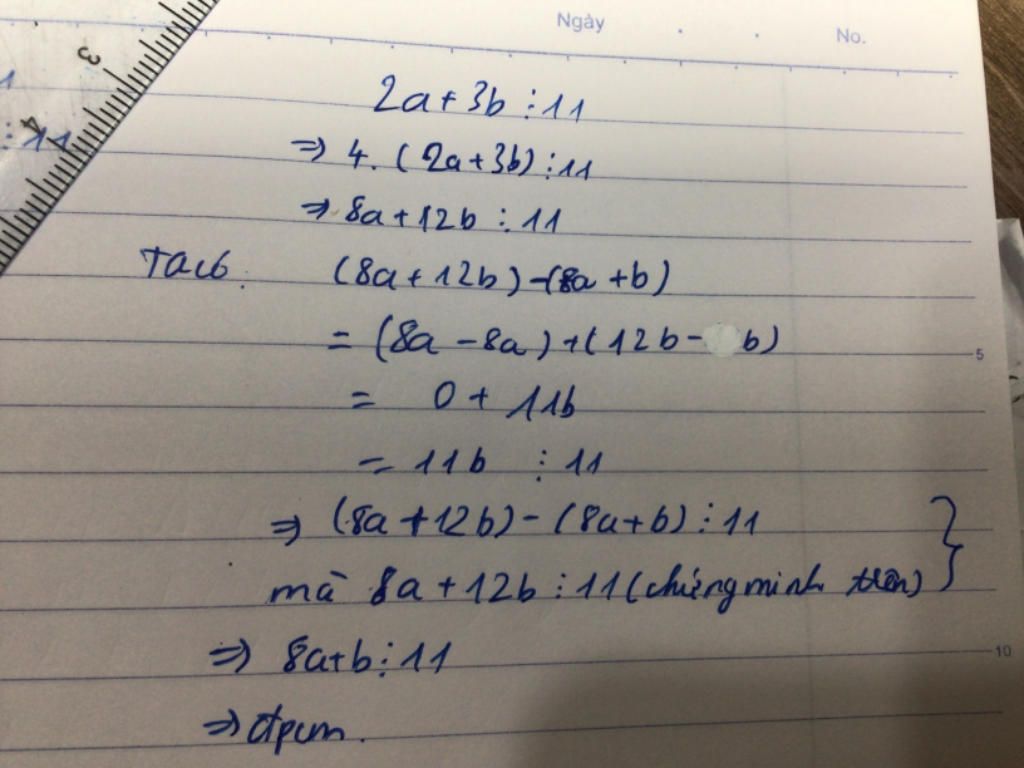 Ngày . . No.
3
4
1
⋮ 11
2a + 3b ⋮ 11
⇒ 4. (2a + 3b) ⋮ 11
⇒ 8a + 12b ⋮ 11
Ta có (8a + 12b) - (8a + b)
= (8a - 8a) + (12b - b)
= 0 + 11b
= 11b ⋮ 11
⇒ (8a + 12b) - (8a + b) ⋮ 11
mà 8a + 12b ⋮ 11 (chứng minh trên)
⇒ 8a + b ⋮ 11
⇒ đpcm.
5
10